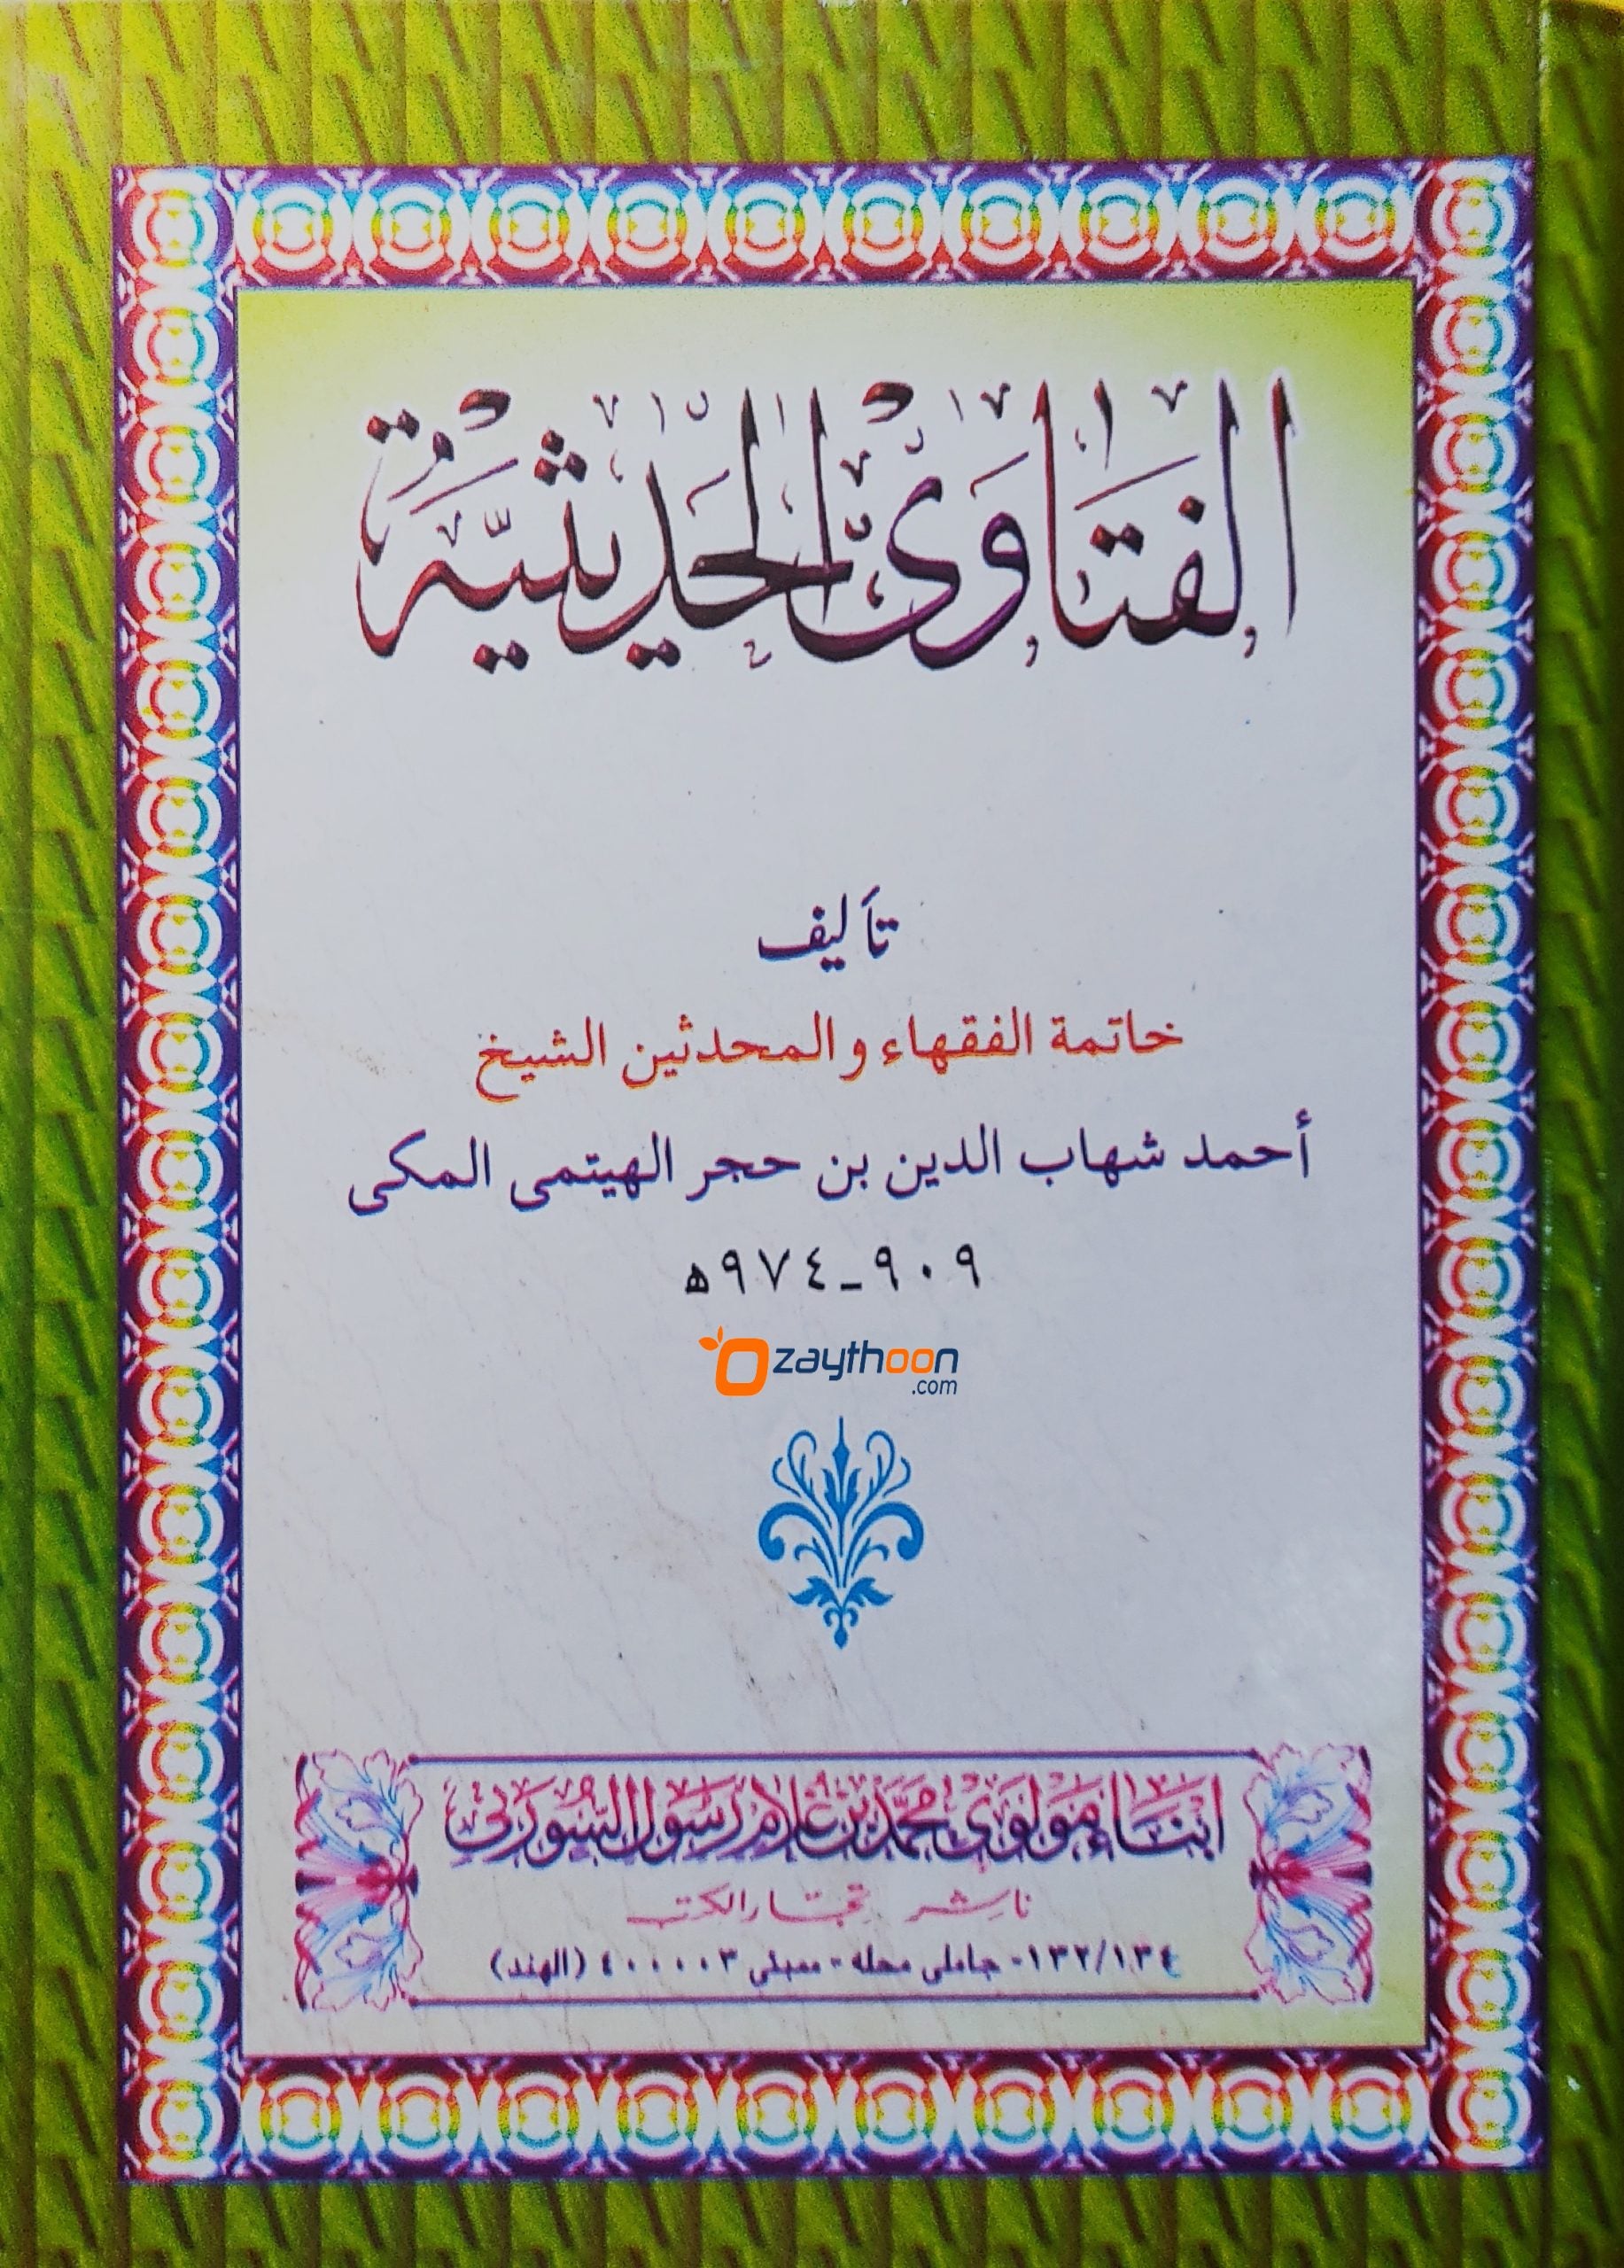 الفتاوى الحديثية
تأليف
خاتمة الفقهاء والمحدثين الشيخ
أحمد شهاب الدين بن حجر الهيتمى المكى
٩٠٩-٩٧٤ﻫ
zaythoon
.com
ابناء مولوى محمد بن غلام رسول السورتى
ناشر تجار الكتب
١٣٢/١٣٤- جاملى محله - ممبئى ٤٠٠٠٠٣ (الهند)